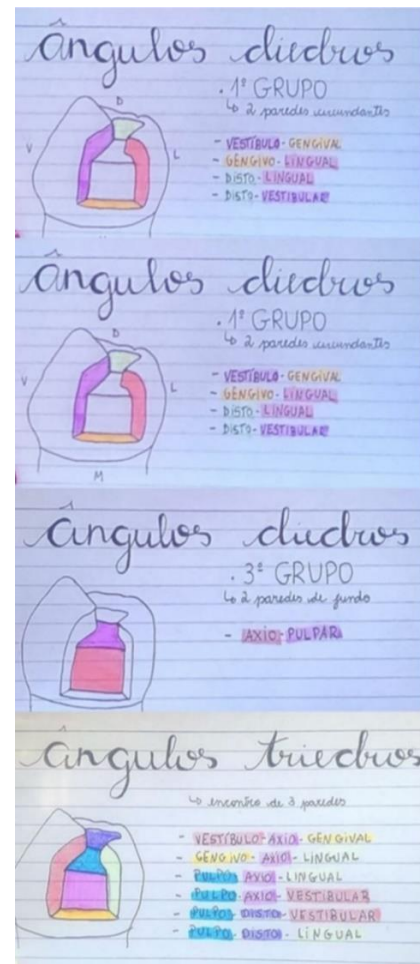 ângulos diedros
. 1º GRUPO
↳ 2 paredes circundantes
D
V
L
- VESTÍBULO - GENGIVAL
- GENGIVO - LINGUAL
- DISTO - LINGUAL
- DISTO - VESTIBULAR
ângulos diedros
. 1º GRUPO
↳ 2 paredes circundantes
D
V
L
M
- VESTÍBULO - GENGIVAL
- GENGIVO - LINGUAL
- DISTO - LINGUAL
- DISTO - VESTIBULAR
ângulos diedros
. 3º GRUPO
↳ 2 paredes de fundo
- AXIO - PULPAR
ângulos triedros
↳ encontro de 3 paredes
- VESTÍBULO - AXIO - GENGIVAL
- GENGIVO - AXIO - LINGUAL
- PULPO - AXIO - LINGUAL
- PULPO - AXIO - VESTIBULAR
- PULPO - DISTO - VESTIBULAR
- PULPO - DISTO - LINGUAL